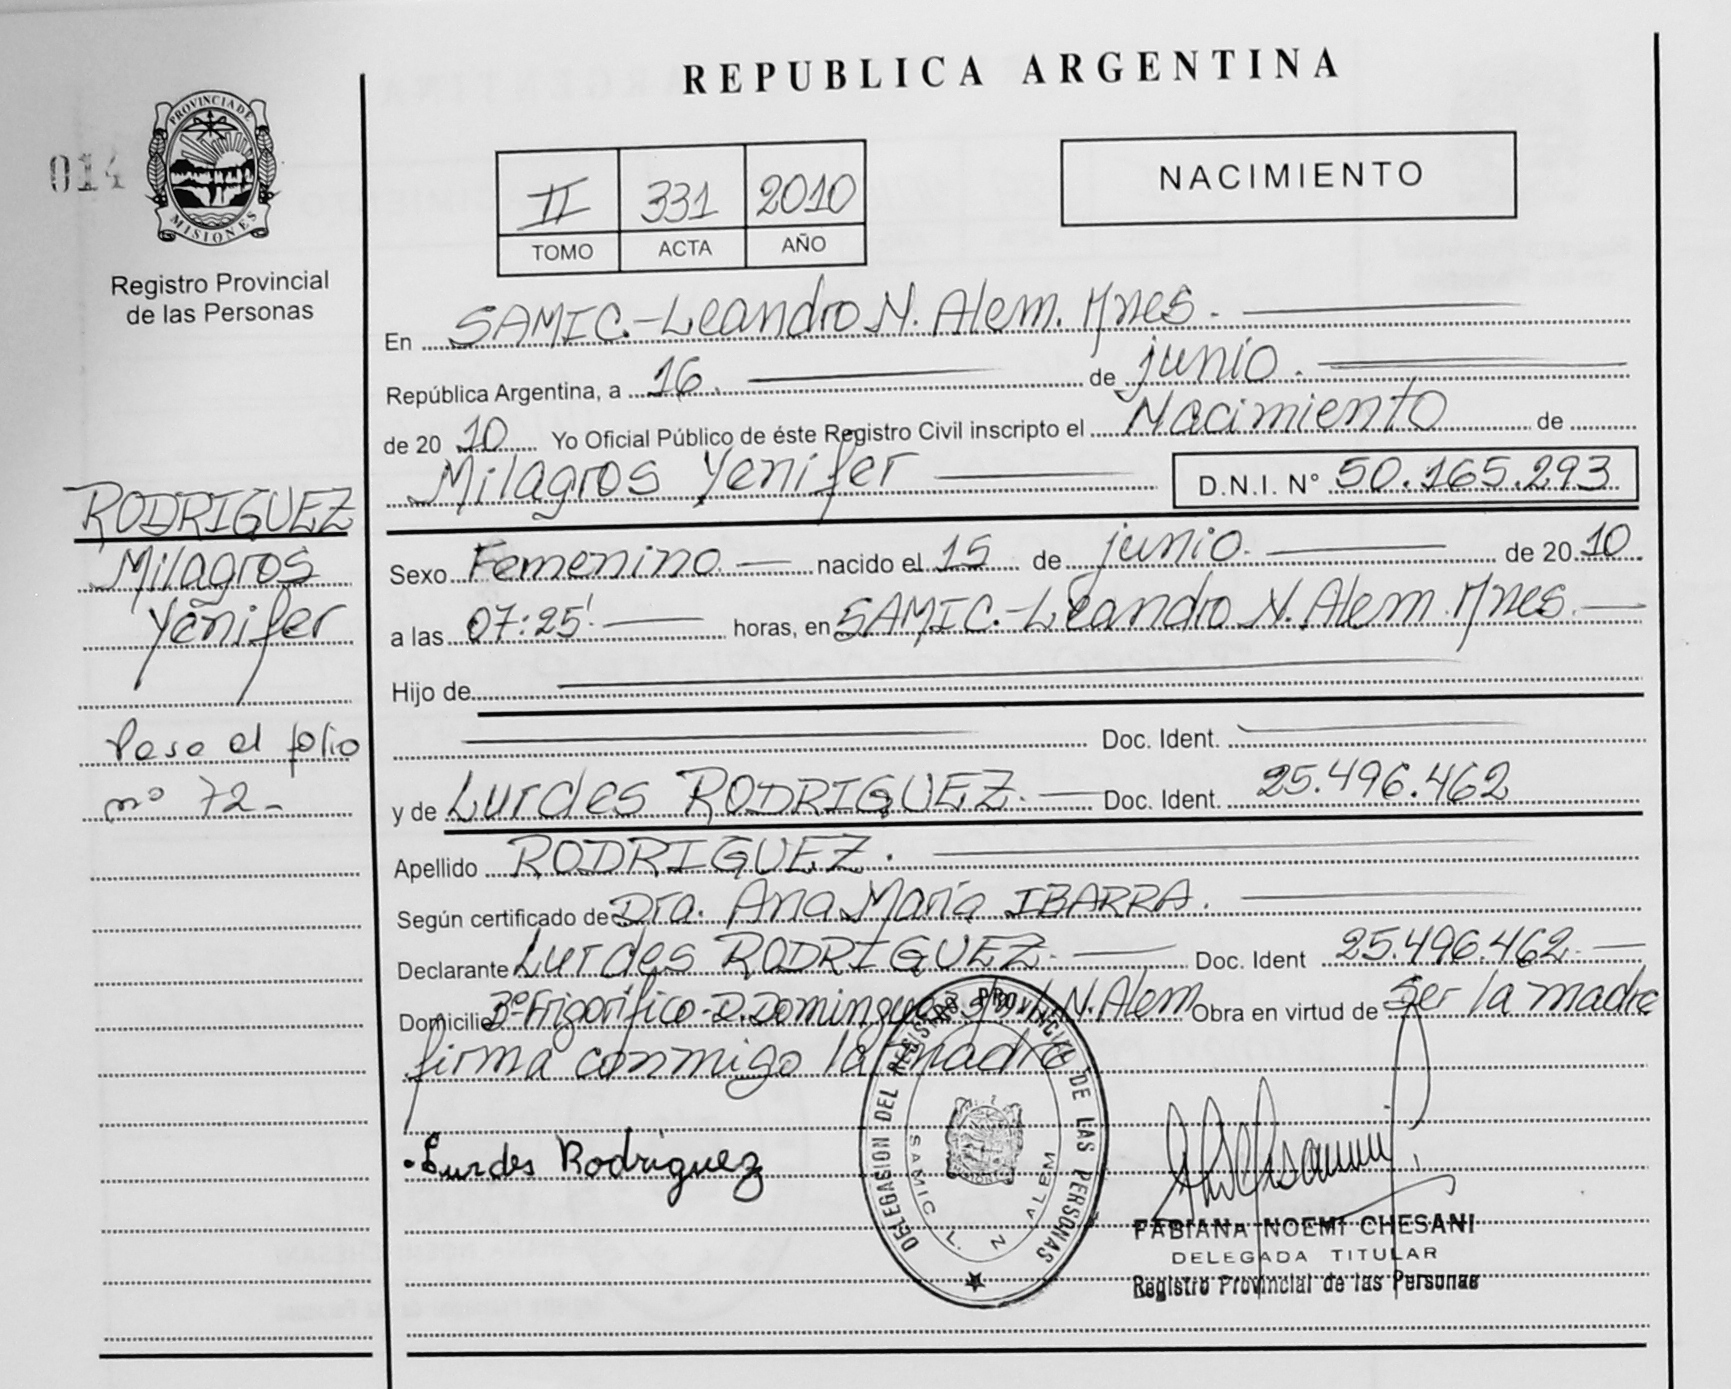 REPUBLICA ARGENTINA
014
PROVINCIA DE MISIONES
Registro Provincial
de las Personas
II 331 2010
TOMO ACTA AÑO
NACIMIENTO
En SAMIC.-Leandro N. Alem. Mnes.
República Argentina, a 16. de junio.
de 20 10 Yo Oficial Público de éste Registro Civil inscripto el Nacimiento de
Milagros Yenifer D.N.I. N° 50.165.293
RODRIGUEZ
Milagros
Yenifer
Pasa al folio
nº 72-
Sexo Femenino. nacido el 15 de junio. de 20 10.
a las 07:25' horas, en SAMIC.-Leandro N. Alem. Mnes.
Hijo de
Doc. Ident.
y de Lurdes RODRIGUEZ. Doc. Ident. 25.496.462
Apellido RODRIGUEZ.
Según certificado de Dra. Ana María IBARRA.
Declarante Lurdes RODRIGUEZ. Doc. Ident 25.496.462.
Domicilio Bº Frigorífico-D. Domingue s/n L.N. Alem Obra en virtud de Ser la madre
firma conmigo la madre
Lurdes Rodriguez
DELEGASION DEL REGISTRO PROVINCIAL DE LAS PERSONAS
SAMIC L. N ALEM
FABIANA NOEMI CHESANI
DELEGADA TITULAR
Registro Provincial de las Personas